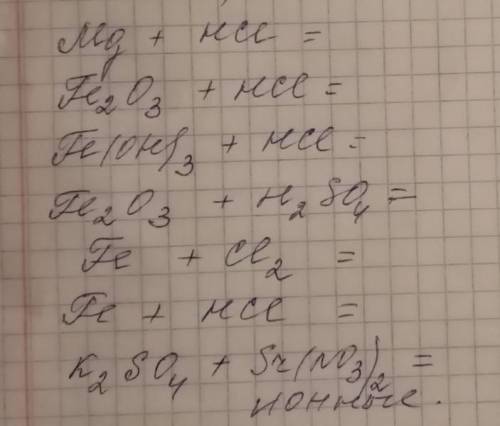 Mg + HCl =
Fe₂O₃ + HCl =
Fe(OH)₃ + HCl =
Fe₂O₃ + H₂SO₄ =
Fe + Cl₂ =
Fe + HCl =
K₂SO₄ + Sr(NO₃)₂ =
ионные.